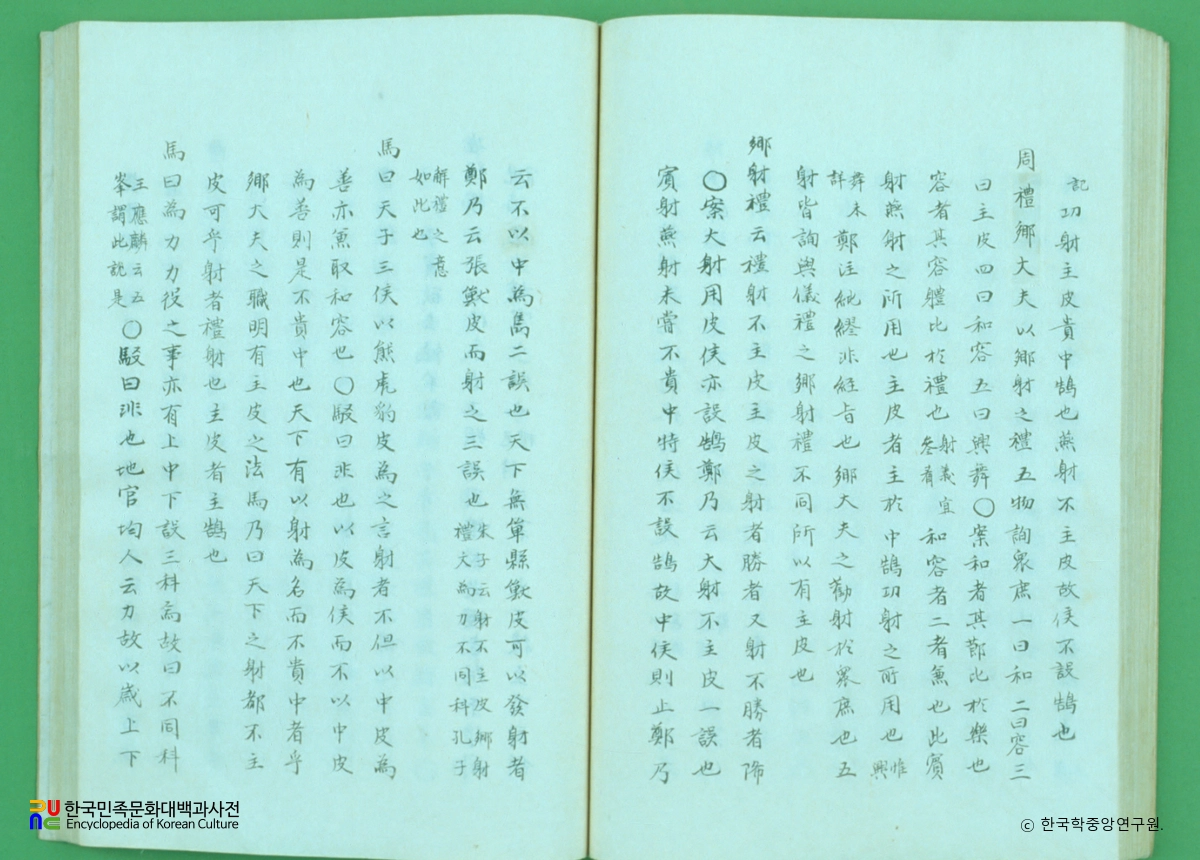 記功射主皮貴中鵠也燕射不主皮故侯不設鵠也
周禮鄉大夫以鄉射之禮五物詢衆庶一曰和二曰容三
曰主皮四曰和容五曰興舞〇案和者其節比於樂也
容者其容體比於禮也射義宜參看和容者二者兼也此賓
射燕射之所用也主皮者主於中鵠功射之所用也惟興
舞未詳鄭注紕繆非經旨也鄉大夫之勸射於衆庶也五
射皆詢與儀禮之鄉射禮不同所以有主皮也
鄉射禮云禮射不主皮主皮之射者勝者又射不勝者降
〇案大射用皮侯亦設鵠鄭乃云大射不主皮一誤也
賓射燕射未嘗不貴中特侯不設鵠故中侯則止鄭乃
云不以中爲雋二誤也天下無單縣獸皮可以發射者
鄭乃云張獸皮而射之三誤也朱子云射不主皮鄉射禮文爲力不同科孔子
解禮之意如此也
馬曰天子三侯以熊虎豹皮爲之言射者不但以中皮爲
善亦兼取和容也〇駁曰非也以皮爲侯而不以中皮
爲善則是不貴中也天下有以射爲名而不貴中者乎
鄉大夫之職明有主皮之法馬乃曰天下之射都不主
皮可乎射者禮射也主皮者主鵠也
馬曰爲力力役之事亦有上中下設三科焉故曰不同科
王應麟云五峯謂此說是〇駁曰非也地官均人云力故以歲上下
한국민족문화대백과사전
Encyclopedia of Korean Culture
© 한국학중앙연구원.